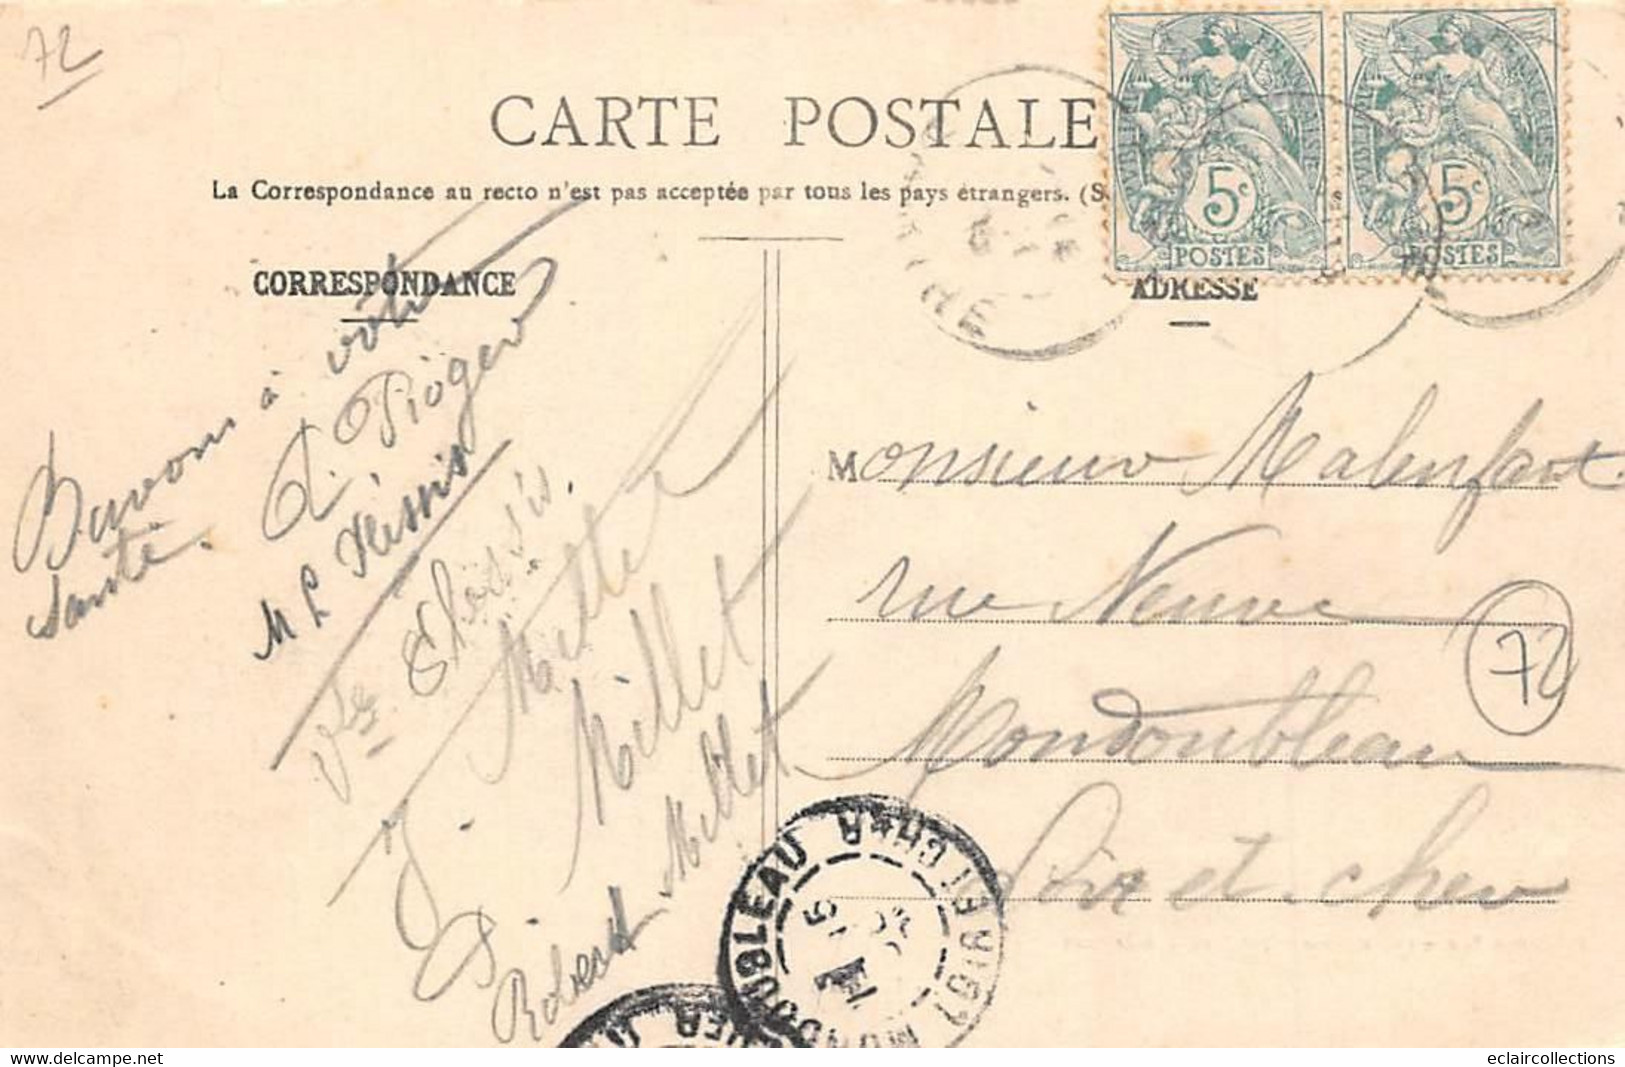 72
CARTE POSTALE
La Correspondance au recto n'est pas acceptée par tous les pays étrangers. (S
CORRESPONDANCE
ADRESSE
REPUBLIQUE FRANÇAISE
5c
POSTES
5c
POSTES
Buvons à votre
santé.
L. Pioger
M L
Ve
Millet
Robert Millet
Monsieur Malenfant
rue Neuve
72
Mondoubleau
Loir et Cher
MONDOUBLEAU LOIR ET CHER
delcampe.net
eclaircollections